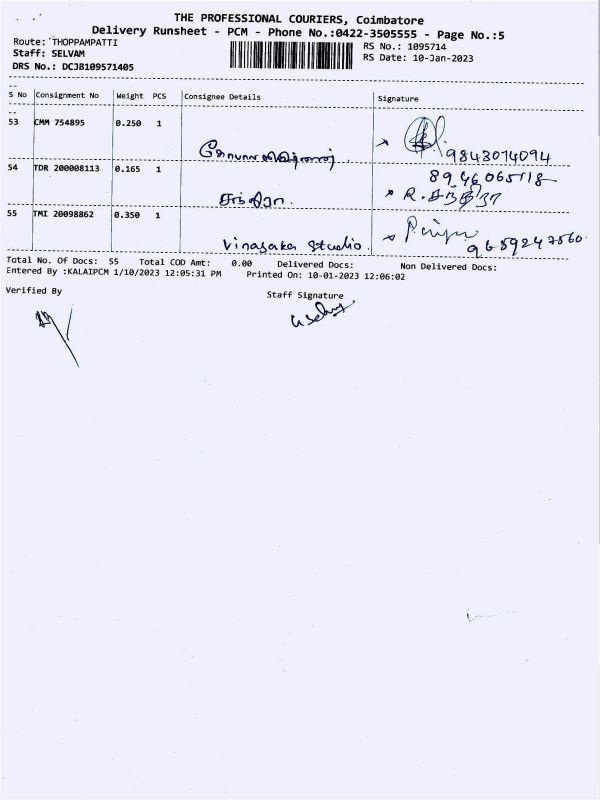 THE PROFESSIONAL COURIERS, Coimbatore
Delivery Runsheet - PCM - Phone No.:0422-3505555 - Page No.:5
Route: THOPPAMPATTI
RS No.: 1095714
Staff: SELVAM
RS Date: 10-Jan-2023
DRS No.: DCJB109571405
S No Consignment No Weight PCS Consignee Details Signature
53 CMM 754895 0.250 1
9843014094
54 TDR 200008113 0.165 1
R.
55 TMI 20098862 0.350 1
Vinayaka Studio.
Total No. Of Docs: 55 Total COD Amt: 0.00 Delivered Docs: Non Delivered Docs:
Entered By :KALAIPCM 1/10/2023 12:05:31 PM Printed On: 10-01-2023 12:06:02
Verified By
Staff Signature